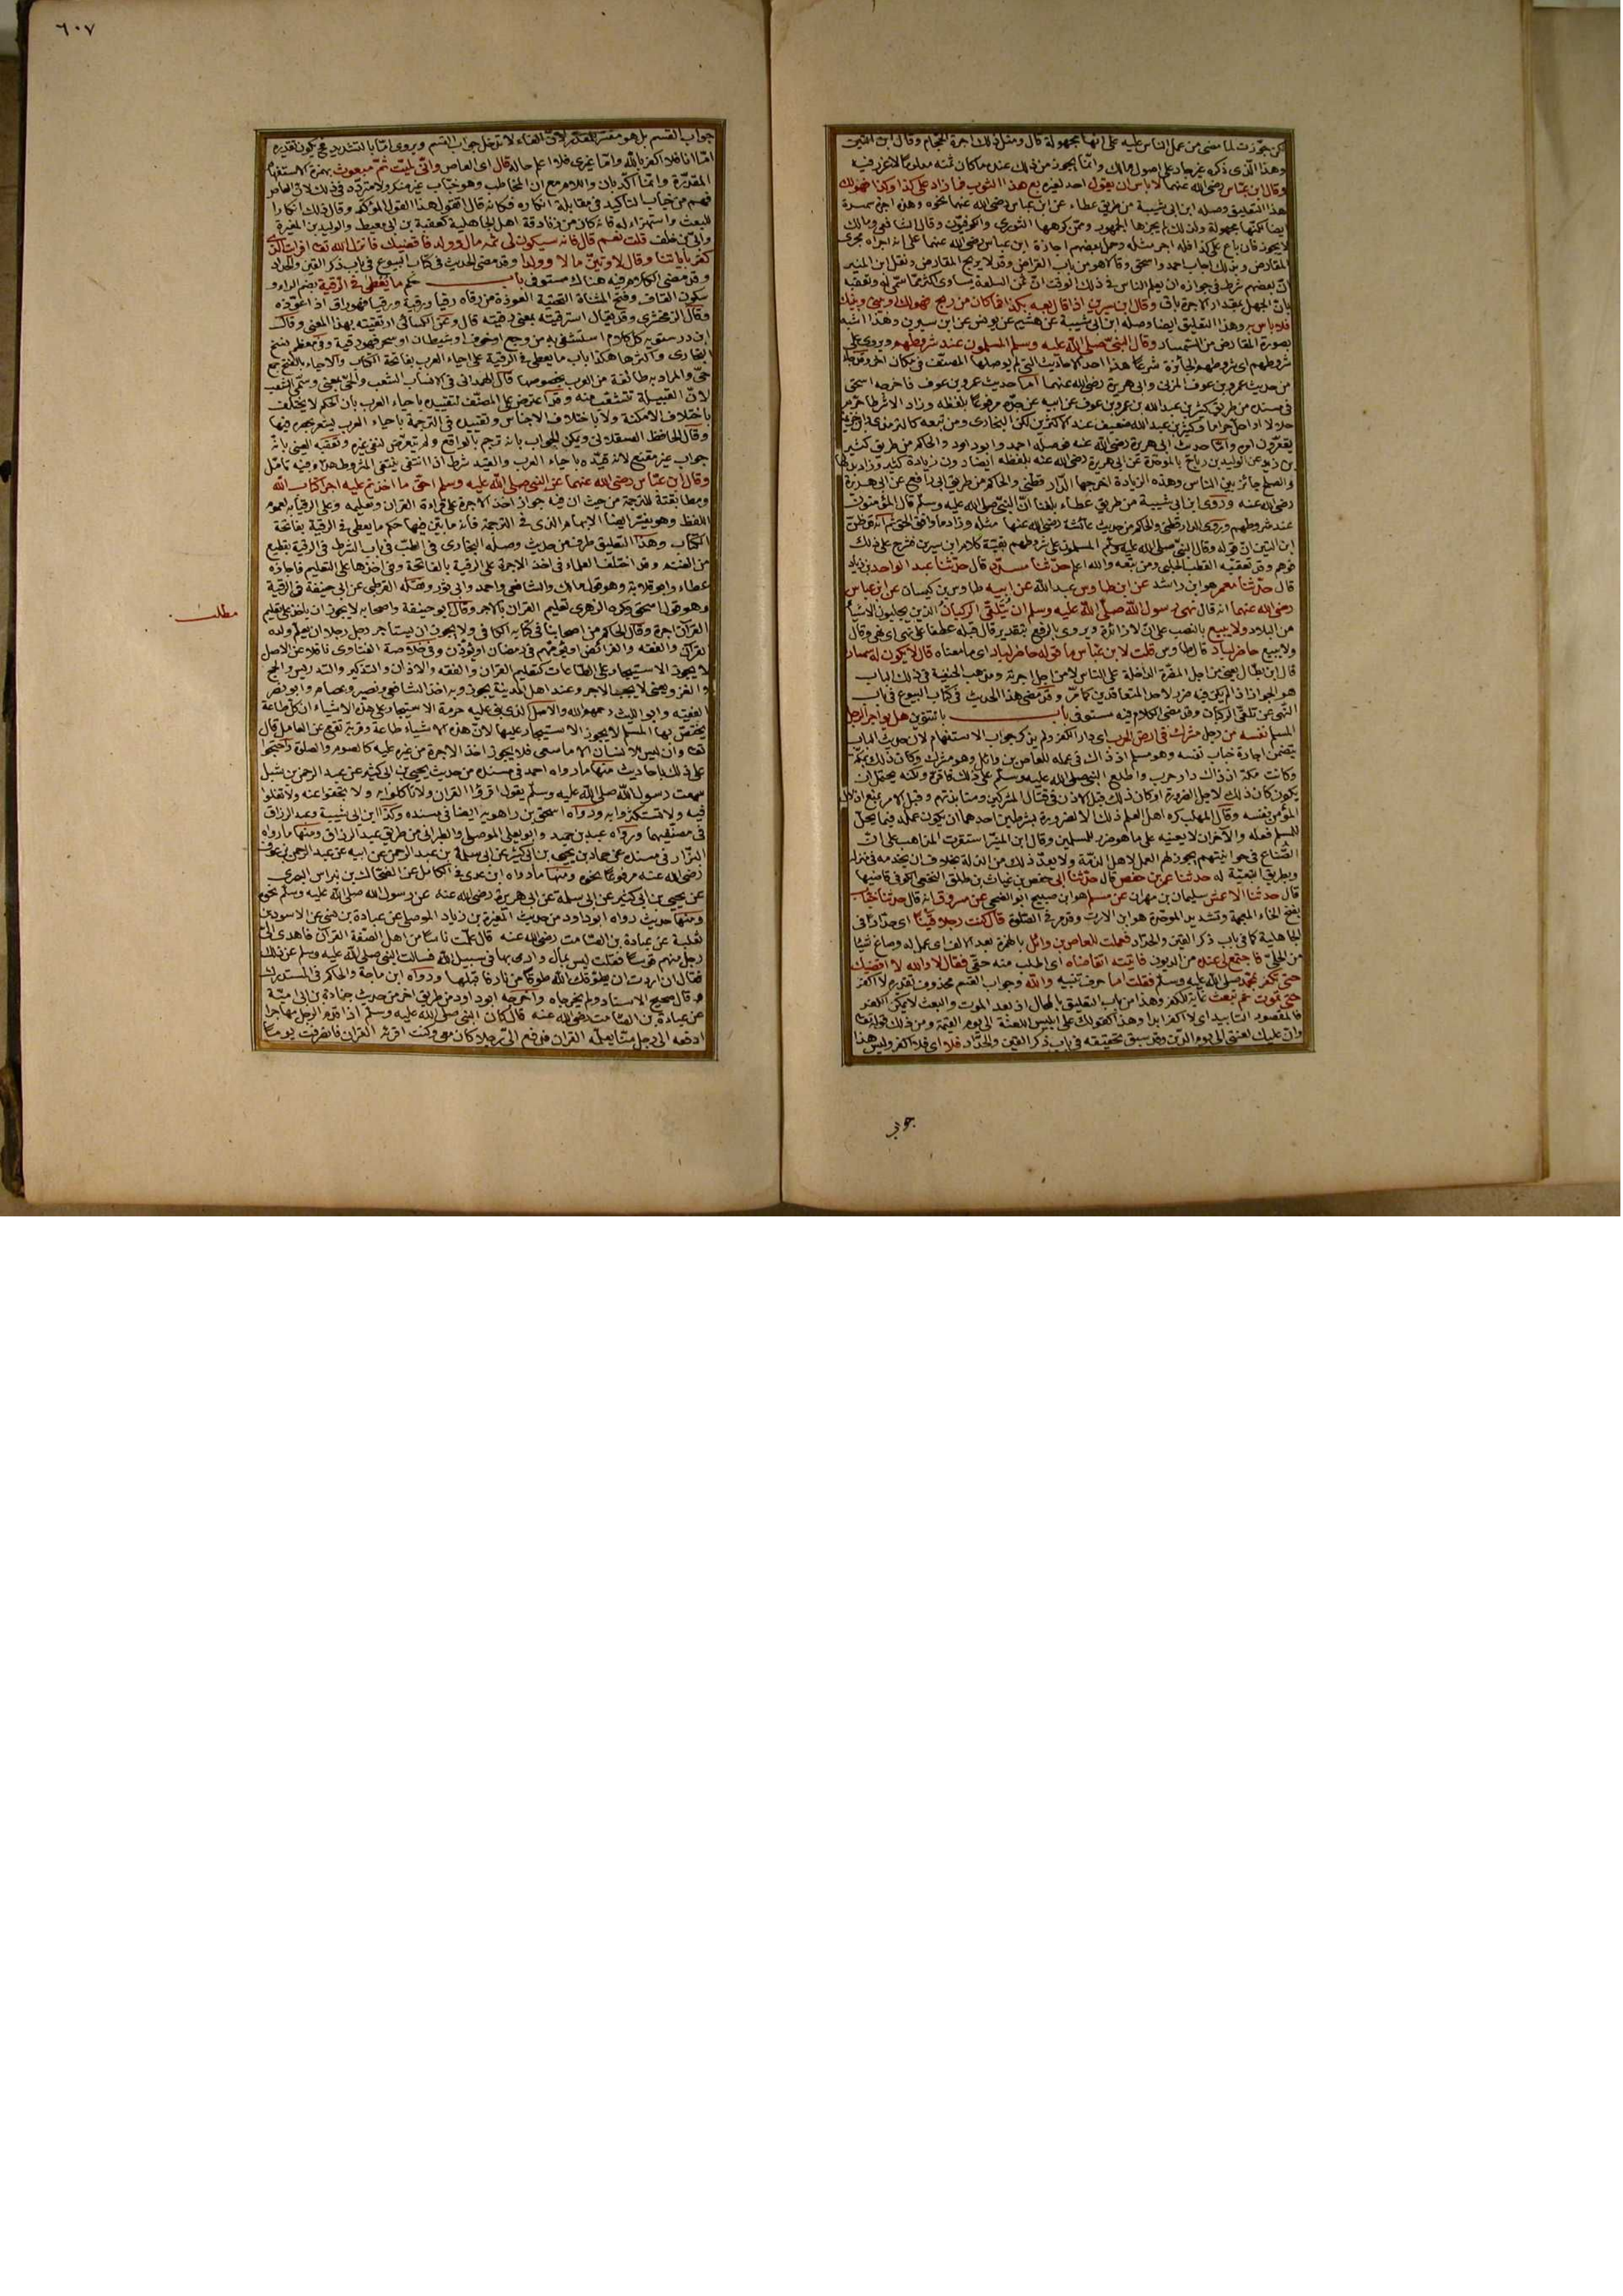 لكن جوّزت لما مضى من عمل الناس عليه على انها مجهولة قال ومثل ذلك اجرة الحجام وقال ابن التين
وهذا الذى ذكره غير جار على اصول مالك وانما يجوز من ذلك عنده ما كان ثمنه معلوما لا غرر فيه
وقال ابن عباس رضى الله عنهما لا باس ان يقول احد لغيره بع هذا الثوب فما زاد على كذا وكذا فهو لك
هذا التعليق وصله ابن ابى شيبة من طريق عطاء عن ابن عباس رضى الله عنهما نحوه وهذه اجر سمسرة
ايضا لكنها مجهولة ولذلك لم يجزها الجمهور وممن كرهها الثورى والكوفيون وقال الشافعى ومالك
لا يجوز فان باع على كذا فله اجر مثله وحمل بعضهم اجازة ابن عباس رضى الله عنهما على انه اجراه مجرى
المقارض وبذلك اجاب احمد واسحق وقالا هو من باب القراض وقد لا يربح المقارض ونقل ابن المنير
ان بعضهم شرط فى جوازه ان يعلم الناس فى ذلك الوقت ان ثمن السلعة يساوى اكثر مما سمى له وتعقبه
بان الجهل بمقدار الاجرة باق وقال ابن سيرين اذا قال بعه بكذا فما كان من ربح فهو لك او بينى وبينك
فلا باس به وهذا التعليق ايضا وصله ابن ابى شيبة عن هشيم عن يونس عن ابن سيرين وهذا اشبه
بصورة المقارض من السمسار وقال النبى صلى الله عليه وسلم المسلمون عند شروطهم ويروى على
شروطهم اى شروطهم الجائزة شرعا هذا احد الاحاديث التى لم يوصلها المصنف فى مكان اخر وقد جاء
من حديث عمرو بن عوف المزنى وابى هريرة رضى الله عنهما اما حديث عمرو بن عوف فاخرجه اسحق
فى مسنده من طريق كثير بن عبد الله بن عمرو بن عوف عن ابيه عن جده مرفوعا بلفظه وزاد الا شرطا حرم
حلالا او احل حراما وكثير بن عبد الله ضعيف عند الاكثرين لكن البخارى ومن تبعه كالترمذى وابن خزيمة
يقوّون امره واما حديث ابى هريرة رضى الله عنه فوصله احمد وابو داود والحاكم من طريق كثير
بن زيد عن الوليد بن رباح بالموحدة عن ابى هريرة رضى الله عنه بلفظه ايضا دون زيادة كثير وزاد بدلها
والصلح جائز بين الناس وهذه الزيادة اخرجها الدار قطنى والحاكم من طريق ابى رافع عن ابى هريرة
رضى الله عنه وروى ابن ابى شيبة من طريق عطاء بلغنا ان النبى صلى الله عليه وسلم قال المؤمنون
عند شروطهم وروى الدار قطنى والحاكم من حديث عائشة رضى الله عنها مثله وزاد ما وافق الحق ثم انه قد ظن
ابن التين ان قوله وقال النبى صلى الله عليه وسلم المسلمون على شروطهم بقية كلام ابن سيرين فشرح على ذلك
فوهم وقد تعقبه القطب الحلبى ومن تبعه والله اعلم حدثنا مسدد قال حدثنا عبد الواحد بن زياد
قال حدثنا معمر هو ابن راشد عن ابن طاوس عبد الله عن ابيه طاوس بن كيسان عن ابن عباس
رضى الله عنهما انه قال نهى رسول الله صلى الله عليه وسلم ان يتلقى الركبان الذين يجلبون الاشياء
من البلاد ولا يبيع بالنصب على ان لا زائدة ويروى بالرفع بتقدير قال قبله عطفا على نهى اى نهى وقال
ولا يبيع حاضر لباد قال طاوس قلت لابن عباس ما قوله حاضر لباد اى ما معناه قال لا يكون له سمسارا
قال ابن بطال يعنى من اجل المضرة الداخلة على الناس لا من اجل اجرته ومذهب الحنفية فى ذلك الباب
هو الجواز اذا لم يكن فيه ضرر لاحد المتعاقدين كما مر وقد مضى هذا الحديث فى كتاب البيوع فى باب
النهى عن تلقى الركبان وقد مضى الكلام فيه مستوفى باب بالتنوين هل يؤاجر الرجل
المسلم نفسه من رجل مشرك فى ارض الحرب اى دار الكفر ولم يذكر جواب الاستفهام لان حديث الباب
يتضمن اجارة خباب نفسه وهو مسلم اذ ذاك فى عمله للعاص بن وائل وهو مشرك وكان ذلك بمكة
وكانت مكة اذ ذاك دار حرب واطلع النبى صلى الله عليه وسلم على ذلك فاقره ولكنه يحتمل ان
يكون كان ذلك لاجل الضرورة او كان ذلك قبل الاذن فى قتال المشركين ومنابذتهم وقبل الامر بمنع اذلال
المؤمن نفسه وقال المهلب كره اهل العلم ذلك الا لضرورة بشرطين احدهما ان يكون عمله فيما يحل
للمسلم فعله والاخر ان لا يعينه على ما هو ضرر للمسلمين وقال ابن المنير استقرت المذاهب على ان
الصناع فى حوانيتهم يجوز لهم العمل لاهل الذمة ولا يعد ذلك من الذلة بخلاف ان يخدمه فى منزله
وبطريق التبعية له حدثنا عمر بن حفص قال حدثنا ابى حفص بن غياث بن طلق النخعى الكوفى قاضيها
قال حدثنا الاعمش سليمان بن مهران عن مسلم هو ابن صبيح ابو الضحى عن مسروق انه قال حدثنا خباب
بفتح الخاء المعجمة وتشديد الموحدة هو ابن الارت وقد مر فى الصلوة قال كنت رجلا قينا اى حدادا فى
الجاهلية كما فى باب ذكر القين والحداد فعملت للعاص بن وائل بالهمزة بعد الالف اى عمل له وصاغ شيئا
من الحلى فاجتمع لى عنده من الديون فاتيته اتقاضاه اى اطلب منه حقى فقال لا والله لا اقضيك
حتى تكفر بمحمد صلى الله عليه وسلم فقلت اما حرف تنبيه والله وجواب القسم محذوف تقديره لا اكفر
حتى تموت ثم تبعث غاية للكفر وهذا من باب التعليق بالمحال اذ بعد الموت والبعث لا يمكن الكفر
فالمقصود التابيد اى لا اكفر ابدا وهذا كقولك على ابليس اللعنة الى يوم القيمة ومن ذلك قوله تعالى
وان عليك لعنتى الى يوم الدين وقد سبق تحقيقه فى باب ذكر القين والحداد فلا اى فلا اكفر وليس هذا
جواب
٦٠٧
جواب القسم بل هو مفسر للمقدر لان الفاء لا تدخل جواب القسم ويروى اما بالتشديد فح يكون تقديره
اما انا فلا اكفر بالله واما غيرى فلا اعلم حاله قال اى العاص وانى لميت ثم مبعوث بهمزة الاستفهام
المقدرة وانما اكد بان واللام مع ان المخاطب وهو خباب غير منكر ولا متردد فى ذلك لان العاص
فهم من خباب التاكيد فى مقابلة انكاره فكانه قال اتقول هذا القول المؤكد وقال ذلك انكارا
للبعث واستهزاء له فانه كان من زنادقة اهل الجاهلية كعقبة بن ابى معيط والوليد بن المغيرة
وابى بن خلف قلت نعم قال فانه سيكون لى ثمه مال وولد فاقضيك فانزل الله تعالى افرايت الذى
كفر بآياتنا وقال لاوتين مالا وولدا وقد مضى الحديث فى كتاب البيوع فى باب ذكر القين والحداد
وقد مضى الكلام فيه هناك مستوفى باب حكم ما يعطى فى الرقية بضم الراء و
سكون القاف وفتح المثناة التحتية العوذة من رقاه رقيا ورقية ورقيا فهو راق اذا عوذه
وقال الزمخشرى وقد يقال استرقيته بمعنى رقيته قال وعن الكسائى ارتقيته بهذا المعنى وقال
ابن درستويه كل كلام استشفى به من وجع او خوف او شيطان او سحر فهو رقية وفى معظم نسخ
البخارى واكثرها هكذا باب ما يعطى فى الرقية على احياء العرب بفاتحة الكتاب والاحياء بالفتح جمع
حى والمراد به طائفة من العرب مخصوصة قال الهمدانى فى الانساب الشعب والحى بمعنى وسمى الشعب
لان القبيلة تتشعب منه وقد اعترض على المصنف لتقييده باحياء العرب بان الحكم لا يختلف
باختلاف الامكنة ولا باختلاف الاجناس وتقييده فى الترجمة باحياء العرب يشعر بحصره فيها
وقال الحافظ العسقلانى ويمكن الجواب بانه ترجم بالواقع ولم يتعرض لنفى غيره وتعقبه العينى بانه
جواب غير مقنع لانه قيده باحياء العرب والقيد شرط اذا انتفى ينتفى المشروط هذا وفيه تامل
وقال ابن عباس رضى الله عنهما عن النبى صلى الله عليه وسلم احق ما اخذتم عليه اجرا كتاب الله
ومطابقته للترجمة من حيث ان فيه جواز اخذ الاجرة على قراءة القران وتعليمه وعلى الرقيا به لعموم
اللفظ وهو يفسر ايضا الابهام الذى فى الترجمة فانه ما بين فيها حكم ما يعطى فى الرقية بفاتحة
الكتاب وهذا التعليق طرف من حديث وصله البخارى فى الطب فى باب الشرط فى الرقية بقطيع
من الغنم وقد اختلف العلماء فى اخذ الاجرة على الرقية بالفاتحة وفى اخذها على التعليم فاجازه
عطاء وابو قلابة وهو قول مالك والشافعى واحمد وابى ثور ونقله القرطبى عن ابى حنيفة فى الرقية
وهو قول اسحق وكره الزهرى تعليم القران بالاجر وقال ابو حنيفة واصحابه لا يجوز ان ياخذ على تعليم
مطلب
القران اجرة وقال الحاكم من اصحابنا فى كتابه الكافى ولا يجوز ان يستاجر رجل رجلا ان يعلم ولده
القران والفقه والفرائض او يؤمهم فى رمضان او يؤذن وفى خلاصة الفتاوى ناقلا عن الاصل
لا يجوز الاستيجار على الطاعات كتعليم القران والفقه والاذان والتذكير والتدريس والحج
والغزو يعنى لا يجب الاجر وعند اهل المدينة يجوز وبه اخذ الشافعى ونصير وعصام وابو نصر
الفقيه وابو الليث رحمهم الله والاصل الذى بنى عليه حرمة الاستيجار على هذه الاشياء ان كل طاعة
يختص بها المسلم لا يجوز الاستيجار عليها لان هذه الاشياء طاعة وقربة تقع عن العامل قال
تعالى وان ليس للانسان الا ما سعى فلا يجوز اخذ الاجرة من غيره عليه كالصوم والصلوة واحتجوا
على ذلك باحاديث منها ما رواه احمد فى مسنده من حديث يحيى بن ابى كثير عن عبد الرحمن بن شبل
سمعت رسول الله صلى الله عليه وسلم يقول اقرؤا القران ولا تاكلوا به ولا تجفوا عنه ولا تغلوا
فيه ولا تستكثروا به ورواه اسحق بن راهويه ايضا فى مسنده وكذا ابن ابى شيبة وعبد الرزاق
فى مصنفيهما ورواه عبد بن حميد وابو يعلى الموصلى والطبرانى من طريق عبد الرزاق ومنها ما رواه
البزار فى مسنده عن حماد بن يحيى بن ابى كثير عن ابى سلمة بن عبد الرحمن عن ابيه عبد الرحمن بن عوف
رضى الله عنه مرفوعا نحوه ومنها ما رواه ابن عدى فى الكامل عن الضحاك بن نبراس البصرى
عن يحيى بن ابى كثير عن ابى سلمة عن ابى هريرة رضى الله عنه عن رسول الله صلى الله عليه وسلم نحوه
ومنها حديث رواه ابو داود من حديث المغيرة بن زياد الموصلى عن عبادة بن نسى عن الاسود بن
ثعلبة عن عبادة بن الصامت رضى الله عنه قال علمت ناسا من اهل الصفة القران فاهدى الى
رجل منهم قوسا فقلت ليس بمال وارمى بها فى سبيل الله فسالت النبى صلى الله عليه وسلم عن ذلك
فقال ان اردت ان يطوقك الله طوقا من نار فاقبلها ورواه ابن ماجة والحاكم فى المستدرك
وقال صحيح الاسناد ولم يخرجاه واخرجه ابو داود من طريق اخر من حديث جنادة بن ابى امية
عن عبادة بن الصامت رضى الله عنه قال كان النبى صلى الله عليه وسلم اذا قدم الرجل مهاجرا
ادفعه الى رجل منا يعلمه القران فدفع الى رجلا كان معى وكنت اقرئه القران فانصرفت يوما